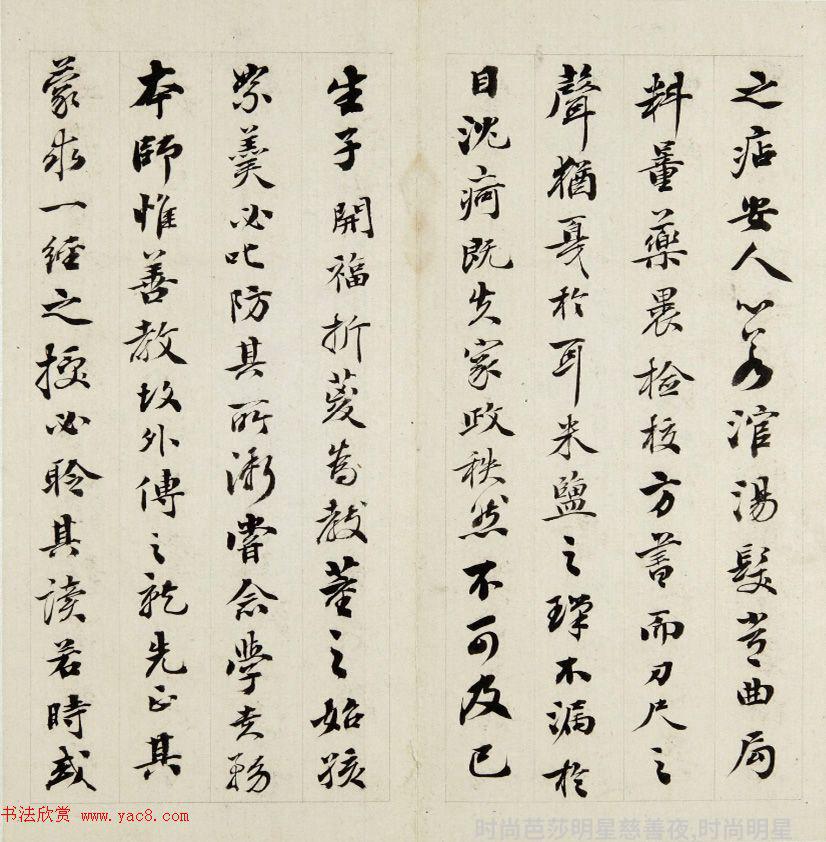 之痁安人心若涫湯髮常曲局
料量藥裹檢校方書而刀尺之
聲猶戛於耳米鹽之瑣不漏於
目沈痾既失家政秩然不可及已
生子開福折葼為教董之始孩
絮羹必叱防其所漸嘗念學貴務
本師惟善教故外傅之就先正其
蒙求一經之授必聆其讀若時或
书法欣赏 www.yac8.com
时尚芭莎明星慈善夜,时尚明星